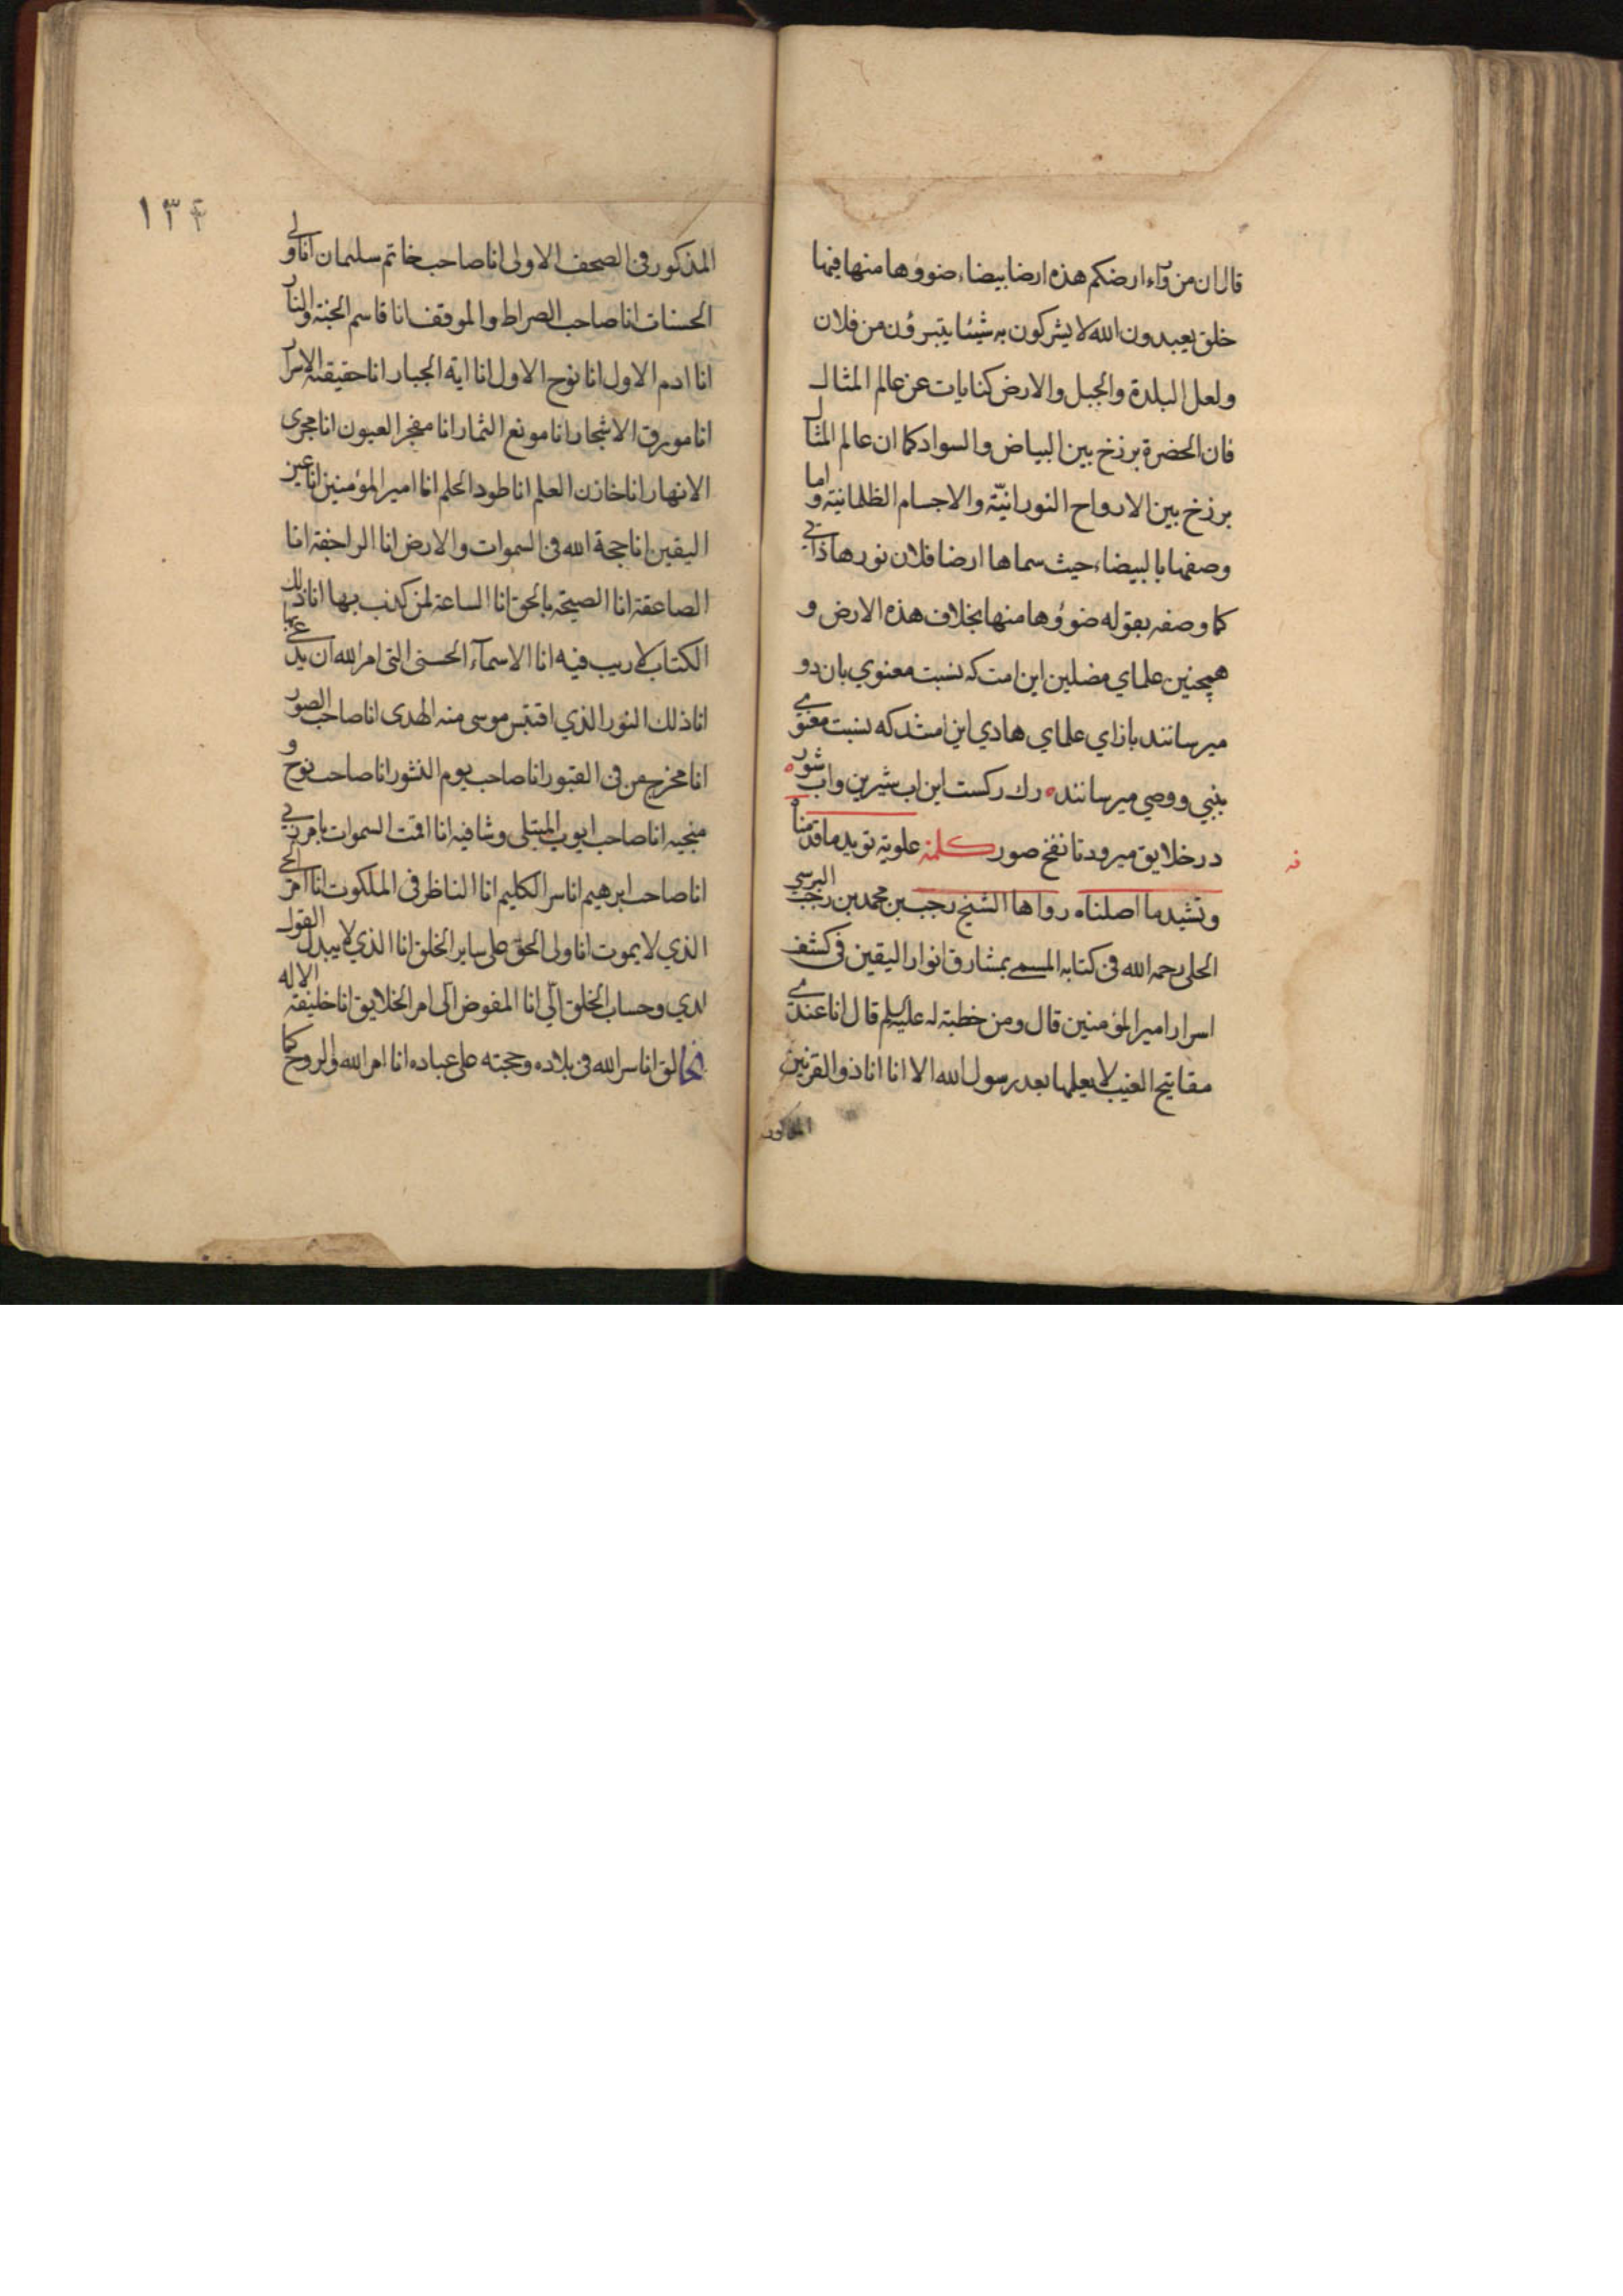 قال ان من وراء ارضكم هذه ارضا بيضاء ضوؤها منها فيها
خلق يعبدون الله لا يشركون به شيئا يتبرؤن من فلان
ولعل البلدة والجبل والارض كنايات عن عالم المثال
فان الخضرة برزخ بين البياض والسواد كما ان عالم المثال
برزخ بين الارواح النورانيّة والاجسام الظلمانية واما
وصفها بالبيضاء حيث سماها ارضا فلان نورها ذاتي
كما وصفه بقوله ضوؤها منها بخلاف هذه الارض و
همچنين علماي مضلين اين امت كه نسبت معنوي بان دو
ميرسانند بازاي علماي هادي اين امتند كه نسبت معنوي
بنبي ووصي ميرسانند ه رك ركست اين اب شيرين واب شور ه
در خلايق ميرود تا نفخ صور كلمة علوية تويد ما قدمناه
وتشيد ما اصلناه رواها الشيخ رجب بن محمد بن رجب البرسي
الحلي رحمه الله في كتابه المسمى بمشارق انوار اليقين في كشف
اسرار امير المؤمنين قال ومن خطبة له عليه السلم قال انا عندي
مفاتيح الغيب لا يعلمها بعد رسول الله الا انا انا ذو القرنين
المذكور
١٣٤
المذكور في الصحف الاولى انا صاحب خاتم سليمان انا ولي
الحسنات انا صاحب الصراط والموقف انا قاسم الجنة والنار
انا ادم الاول انا نوح الاول انا اية الجبار انا حقيقة الاسرار
انا مورق الاشجار انا مونع الثمار انا مفجر العيون انا مجرى
الانهار انا خازن العلم انا طود الحلم انا امير المؤمنين انا عين
اليقين انا حجة الله في السموات والارض انا الراجفة انا
الصاعقة انا الصيحة بالحق انا الساعة لمن كذب بها انا ذلك
الكتاب لا ريب فيه انا الاسمآء الحسنى التى امر الله ان يدعى بها
انا ذلك النور الذي اقتبس موسى منه الهدى انا صاحب الصور
انا مخرج من في القبور انا صاحب يوم النشور انا صاحب نوح و
منجيه انا صاحب ايوب المبتلى وشافيه انا اقمت السموات بامر ربي
انا صاحب ابرهيم انا سر الكليم انا الناظر في الملكوت انا امر الحي
الذي لا يموت انا ولى الحق على ساير الخلق انا الذي لا يبدل القول
لدي وحساب الخلق الّي انا المفوض الّى امر الخلايق انا خليفة الاله
الخالق انا سر الله في بلاده وحجته على عباده انا امر الله والروح كما